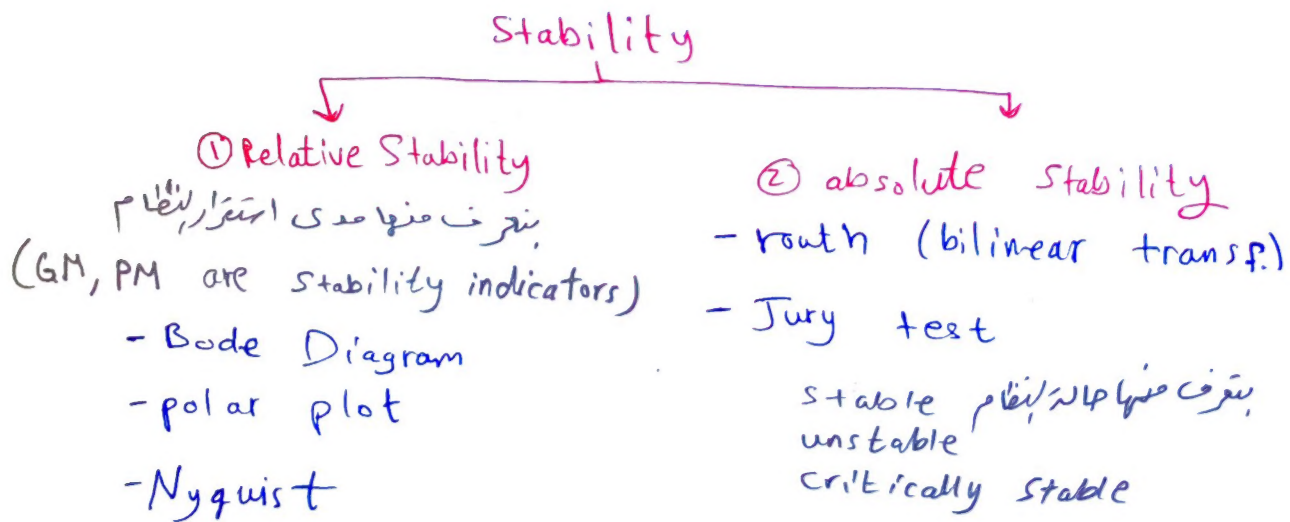 Stability
① Relative Stability
بنعرف منها مدى استقرار النظام
(GM, PM are stability indicators)
- Bode Diagram
- polar plot
- Nyquist
② absolute stability
- routh (bilinear transf.)
- Jury test
بنعرف منها حالة النظام stable
unstable
critically stable